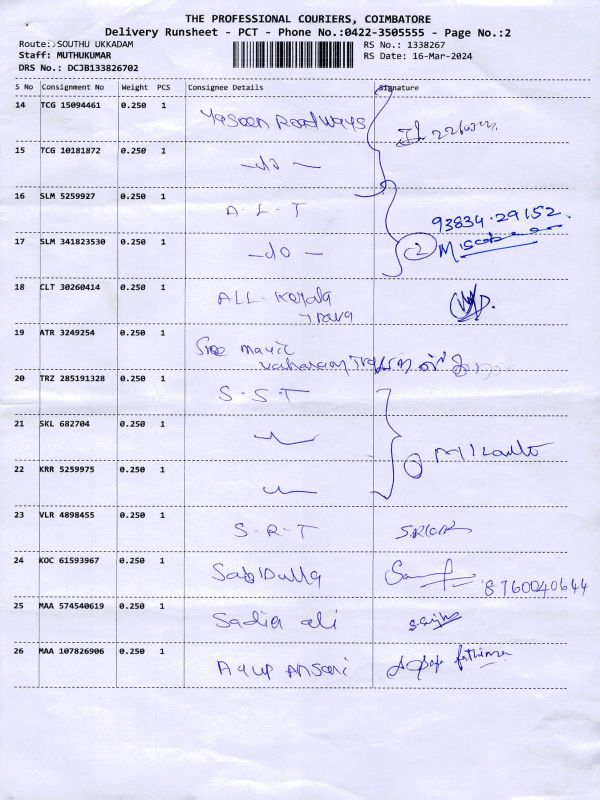 THE PROFESSIONAL COURIERS, COIMBATORE
Delivery Runsheet - PCT - Phone No.:0422-3505555 - Page No.:2
Route: SOUTHU UKKADAM
RS No.: 1338267
Staff: MUTHUKUMAR
RS Date: 16-Mar-2024
DRS No.: DCJB133826702
S No Consignment No Weight PCS Consignee Details Signature
14 TCG 15094461 0.250 1
Yaseen Roadways
15 TCG 10181872 0.250 1
-do-
16 SLM 5259927 0.250 1
A-L-T
93834.29152.
17 SLM 341823530 0.250 1
-do- 2
18 CLT 30260414 0.250 1
ALL-Kerala
Trava
19 ATR 3249254 0.250 1
Sree mayil
20 TRZ 285191328 0.250 1
S-S-T
21 SKL 682704 0.250 1
22 KRR 5259975 0.250 1
23 VLR 4898455 0.250 1
S-R-T
24 KOC 61593967 0.250 1
Sabidulla
8760040644
25 MAA 574540619 0.250 1
Sadia ali
26 MAA 107826906 0.250 1
Ayup Ansari fathima